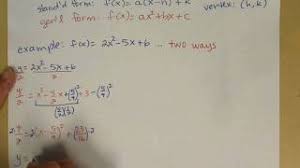 stand'd form: f(x) = a(x-h) + k vertex: (h,k)
gen'l form: f(x) = ax² + bx + c
example: f(x) = 2x² - 5x + 6 ... two ways
y/2 = 2x² - 5x + 6 /2
y/2 = x² - 5/2 x + (5/4)² + 3 - (5/4)²
2· y/2 = 2(x - 5/4)² + (23/16)·2
y =